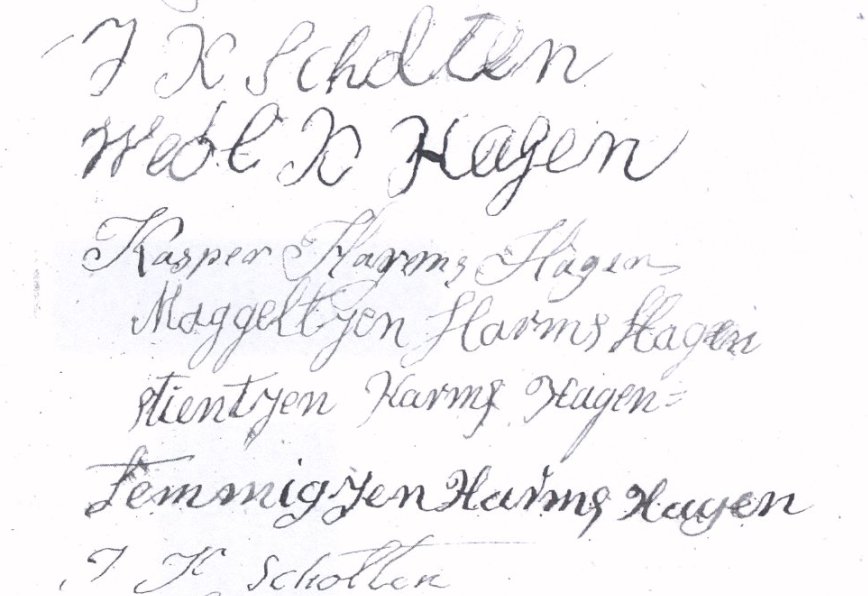 J K Scholten
Wedl K Hagen
Kasper Harms Hagen
Maggeltjen Harms Hagen
stientjen Harms Hagen=
Femmigjen Harms Hagen
J K Scholten